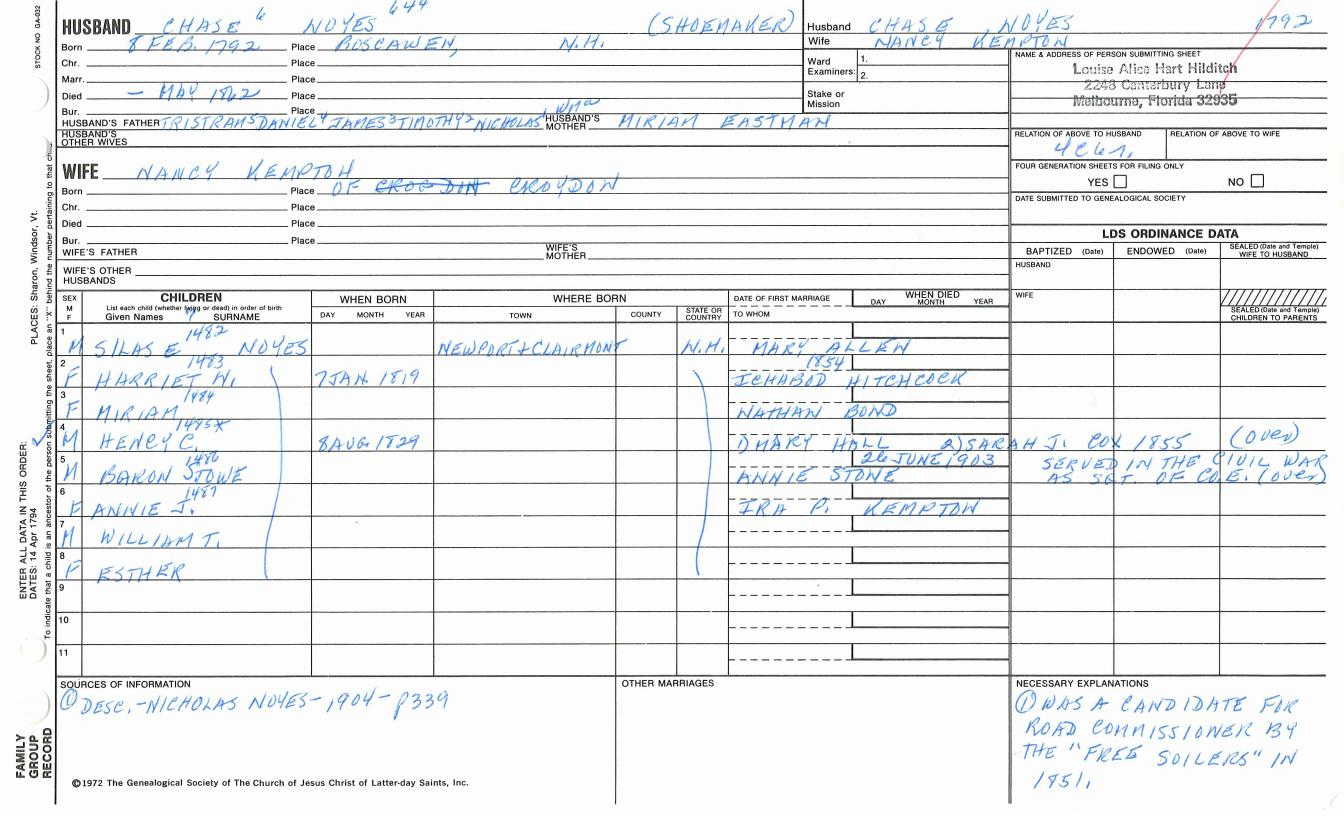 STOCK NO GA-032
PLACES: Sharon, Windsor, Vt.
ENTER ALL DATA IN THIS ORDER:
DATES: 14 Apr 1794
To indicate that a child is an ancestor of the person submitting the sheet, place an "X" behind the number pertaining to that chi
FAMILY
GROUP
RECORD
HUSBAND CHASE 6 NOYES 644 (SHOEMAKER)
Born 8 FEB. 1792 Place BOSCAWEN, N.H.
Chr. Place
Marr. Place
Died - MAY 1862 Place
Bur. Place
HUSBAND'S FATHER TRISTRAM5 DANIEL4 JAMES3 TIMOTHY2 NICHOLAS1 Wma HUSBAND'S MOTHER MIRIAM EASTMAN
HUSBAND'S
OTHER WIVES
Husband CHASE NOYES 1792
Wife NANCY KEMPTON
Ward
Examiners: 1.
2.
Stake or
Mission
NAME & ADDRESS OF PERSON SUBMITTING SHEET
Louise Alice Hart Hilditch
2248 Canterbury Lane
Melbourne, Florida 32935
RELATION OF ABOVE TO HUSBAND RELATION OF ABOVE TO WIFE
4C6r,
FOUR GENERATION SHEETS FOR FILING ONLY
YES NO
DATE SUBMITTED TO GENEALOGICAL SOCIETY
WIFE NANCY KEMPTON
Born Place OF CROGDON CROYDON
Chr. Place
Died Place
Bur. Place
WIFE'S FATHER WIFE'S MOTHER
WIFE'S OTHER
HUSBANDS
LDS ORDINANCE DATA
BAPTIZED (Date) ENDOWED (Date) SEALED (Date and Temple) WIFE TO HUSBAND
HUSBAND
WIFE
SEALED (Date and Temple) CHILDREN TO PARENTS
SEX
M
F
CHILDREN
List each child (whether living or dead) in order of birth
Given Names 7 SURNAME
WHEN BORN
DAY MONTH YEAR
WHERE BORN
TOWN COUNTY STATE OR COUNTRY
DATE OF FIRST MARRIAGE
TO WHOM
WHEN DIED
DAY MONTH YEAR
1 M SILAS E 1482 NOYES NEWPORT+CLAIRMONT N.H. MARY ALLEN
2 F HARRIET N. 1483 7 JAN. 1819 1854 ICHABOD HITCHCOCK
3 F MIRIAM 1484 NATHAN BOND
4 M HENCY C. 1485X 8 AUG. 1829 1) MARY HALL 2) SARAH J. COX 1855 (over)
5 M BARON STOWE 1486 26 JUNE 1903 ANNIE STONE SERVED IN THE CIVIL WAR
AS SGT. OF CO. E. (over)
6 F ANNIE J. 1487 IRA P. KEMPTON
7 M WILLIAM T.
8 F ESTHER
9
10
11
SOURCES OF INFORMATION
① DESC.-NICHOLAS NOYES-1904-p339
OTHER MARRIAGES
NECESSARY EXPLANATIONS
① WAS A CANDIDATE FOR
ROAD COMMISSIONER BY
THE "FREE SOILERS" IN
1851.
©1972 The Genealogical Society of The Church of Jesus Christ of Latter-day Saints, Inc.